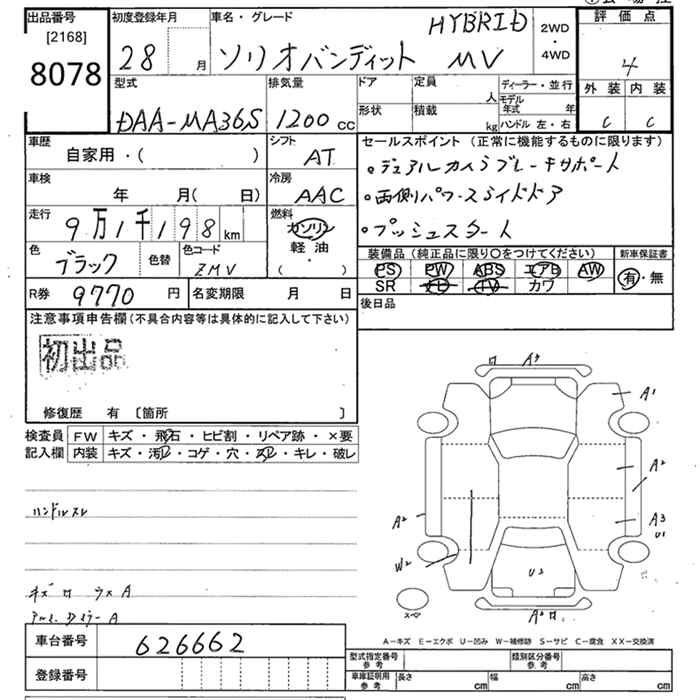 出品番号
[2168]
8078
初度登録年月
28 月
車名・グレード
HYBRID
ソリオバンディット MV
2WD
・
4WD
評価点
4
外装 内装
C C
型式
DAA-MA36S
排気量
1200 cc
ドア
定員
人
形状
積載
kg
ディーラー・並行
モデル年式 年
ハンドル 左・右
車歴
自家用・( )
シフト
AT
車検
年 月( 日)
冷房
AAC
走行
9万1千198 km
燃料
ガソリン
軽油
( ・ )
色
ブラック
色替
色コード
ZMV
R券 9770 円
名変期限 月 日
セールスポイント (正常に機能するものに限ります)
・デュアルカメラブレーキサポート
・両側パワースライドドア
・プッシュスタート
装備品 (純正品に限り〇をつけてください)
新車保証書
PS PW ABS エアB AW
SR TV カワ
有・無
後日品
注意事項申告欄 (不具合内容等は具体的に記入して下さい)
初出品
修復歴 有 〔箇所 〕
検査員
記入欄
FW キズ・飛石・ヒビ割・リペア跡・×要
内装 キズ・汚レ・コゲ・穴・スレ・キレ・破レ
ハンドルスレ
A3
A1
A2
A2
A3
U1
W2
U2
A2
スペア
A－キズ E－エクボ U－凹み W－補修跡 S－サビ C－腐食 XX－交換済
車台番号 626662
登録番号
型式指定番号
参考
類別区分番号
参考
車庫証明用
参考
長さ cm
幅 cm
高さ cm